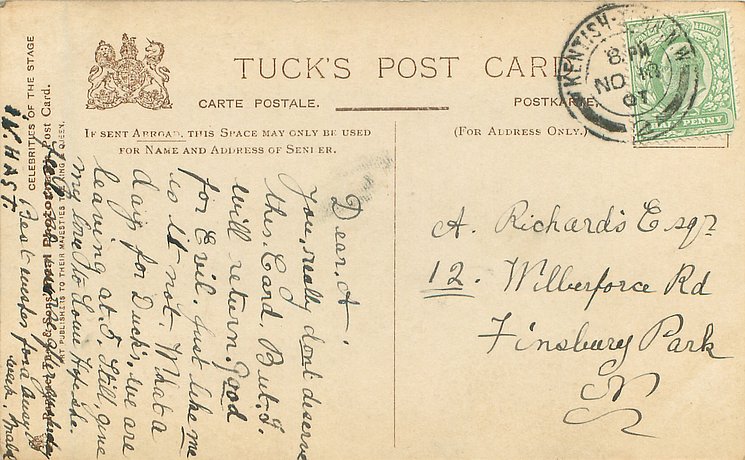 TUCK'S POST CARD
CARTE POSTALE.
POSTKARTE.
IF SENT ABROAD, THIS SPACE MAY ONLY BE USED
FOR NAME AND ADDRESS OF SENDER.
(FOR ADDRESS ONLY.)
KENTISH-TOWN N.W
8 PM
NO 18
07
HALF PENNY
A. Richards Esqr
12. Wilberforce Rd
Finsbury Park
N
Dear. A.
You, really dont deserve
this. Card. But. I.
will return. Good
for Evil. Just like me
is it not. What a
day for Ducks, we are
leaving at. 5. Still give
my love to Lou. Hope she
Best wishes for a
week.
IN HAST.
CELEBRITIES OF THE STAGE
Post Card.
ART PUBLISHERS TO THEIR MAJESTIES THE KING & QUEEN.